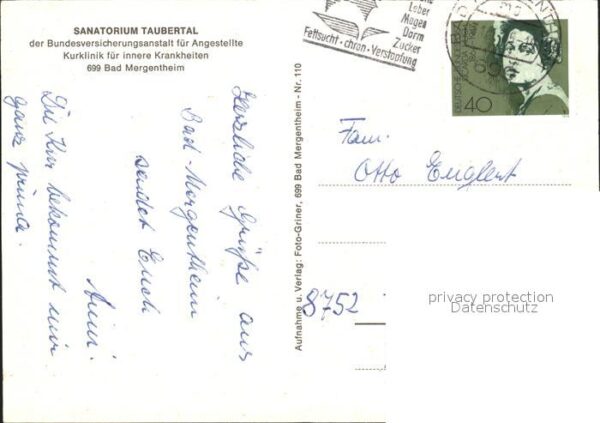 SANATORIUM TAUBERTAL
der Bundesversicherungsanstalt für Angestellte
Kurklinik für innere Krankheiten
699 Bad Mergentheim
Leber
Magen
Darm
Zucker
Fettsucht · chron · Verstopfung
40
Herzliche Grüße aus
Bad-Mergentheim
sendet Euch
Anni.
Die Kur bekommt mir
ganz prima.
Aufnahme u. Verlag: Foto-Griner, 699 Bad Mergentheim - Nr. 110
Fam.
Otto Englert
8752
privacy protection
Datenschutz